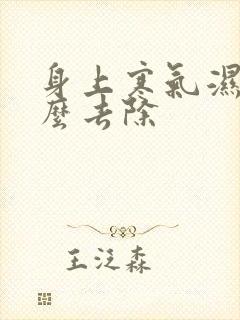 身上寒氣濕
麼去除
王泛森